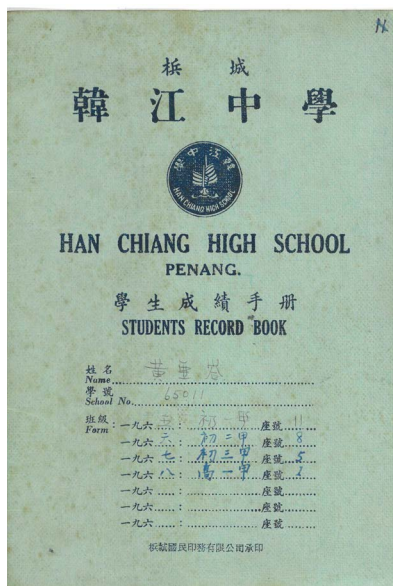 檳城
韓江中學
學中江韓
HAN CHIANG HIGH SCHOOL
HAN CHIANG HIGH SCHOOL
PENANG.
學生成績手册
STUDENTS RECORD BOOK
姓名 黃
Name
學號 65011
School No.
班級：一九六五：初一甲 座號 11
Form 一九六六：初二甲 座號 8
一九六七：初三甲 座號 5
一九六八：高一甲 座號 2
一九六：座號
一九六：座號
一九六：座號
檳城國民印務有限公司承印